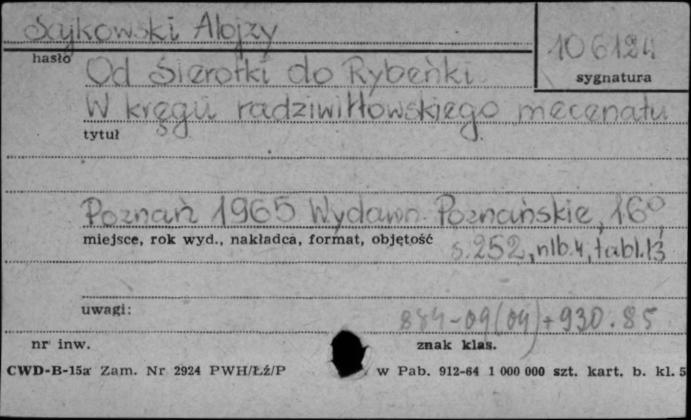 Sajkowski Alojzy
106124
hasło
sygnatura
Od Sierotki do Rybeńki
W kręgu radziwiłłowskiego mecenatu
tytuł
Poznań 1965 Wydawn. Poznańskie, 16°,
miejsce, rok wyd., nakładca, format, objętość
s. 252, nlb. 4, tabl. 13
uwagi:
884-09(04)+930.85
nr inw.
znak klas.
CWD-B-15a Zam. Nr 2924 PWH/Łź/P
w Pab. 912-64 1 000 000 szt. kart. b. kl. 5